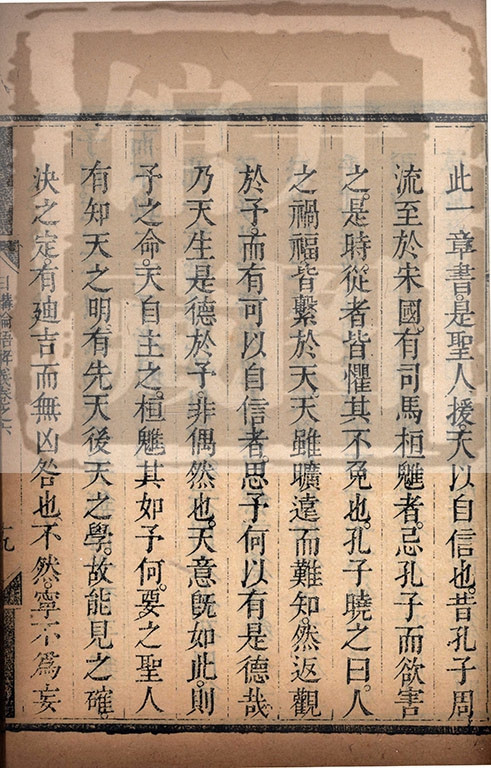 此一章書。是聖人援天以自信也。昔孔子周
流至於宋國。有司馬桓魋者。忌孔子而欲害
之。是時從者皆懼其不免也。孔子曉之曰。人
之禍福。皆繫於天。天雖曠遠而難知。然返觀
於予。而有可以自信者。思予何以有是德哉。
乃天生是德於予。非偶然也。天意既如此。則
予之命。天自主之。桓魋其如予何。要之聖人
有知天之明。有先天後天之學。故能見之確。
決之定。有廸吉而無凶咎也。不然。寧不為妄
日講論語解義卷之六
十九